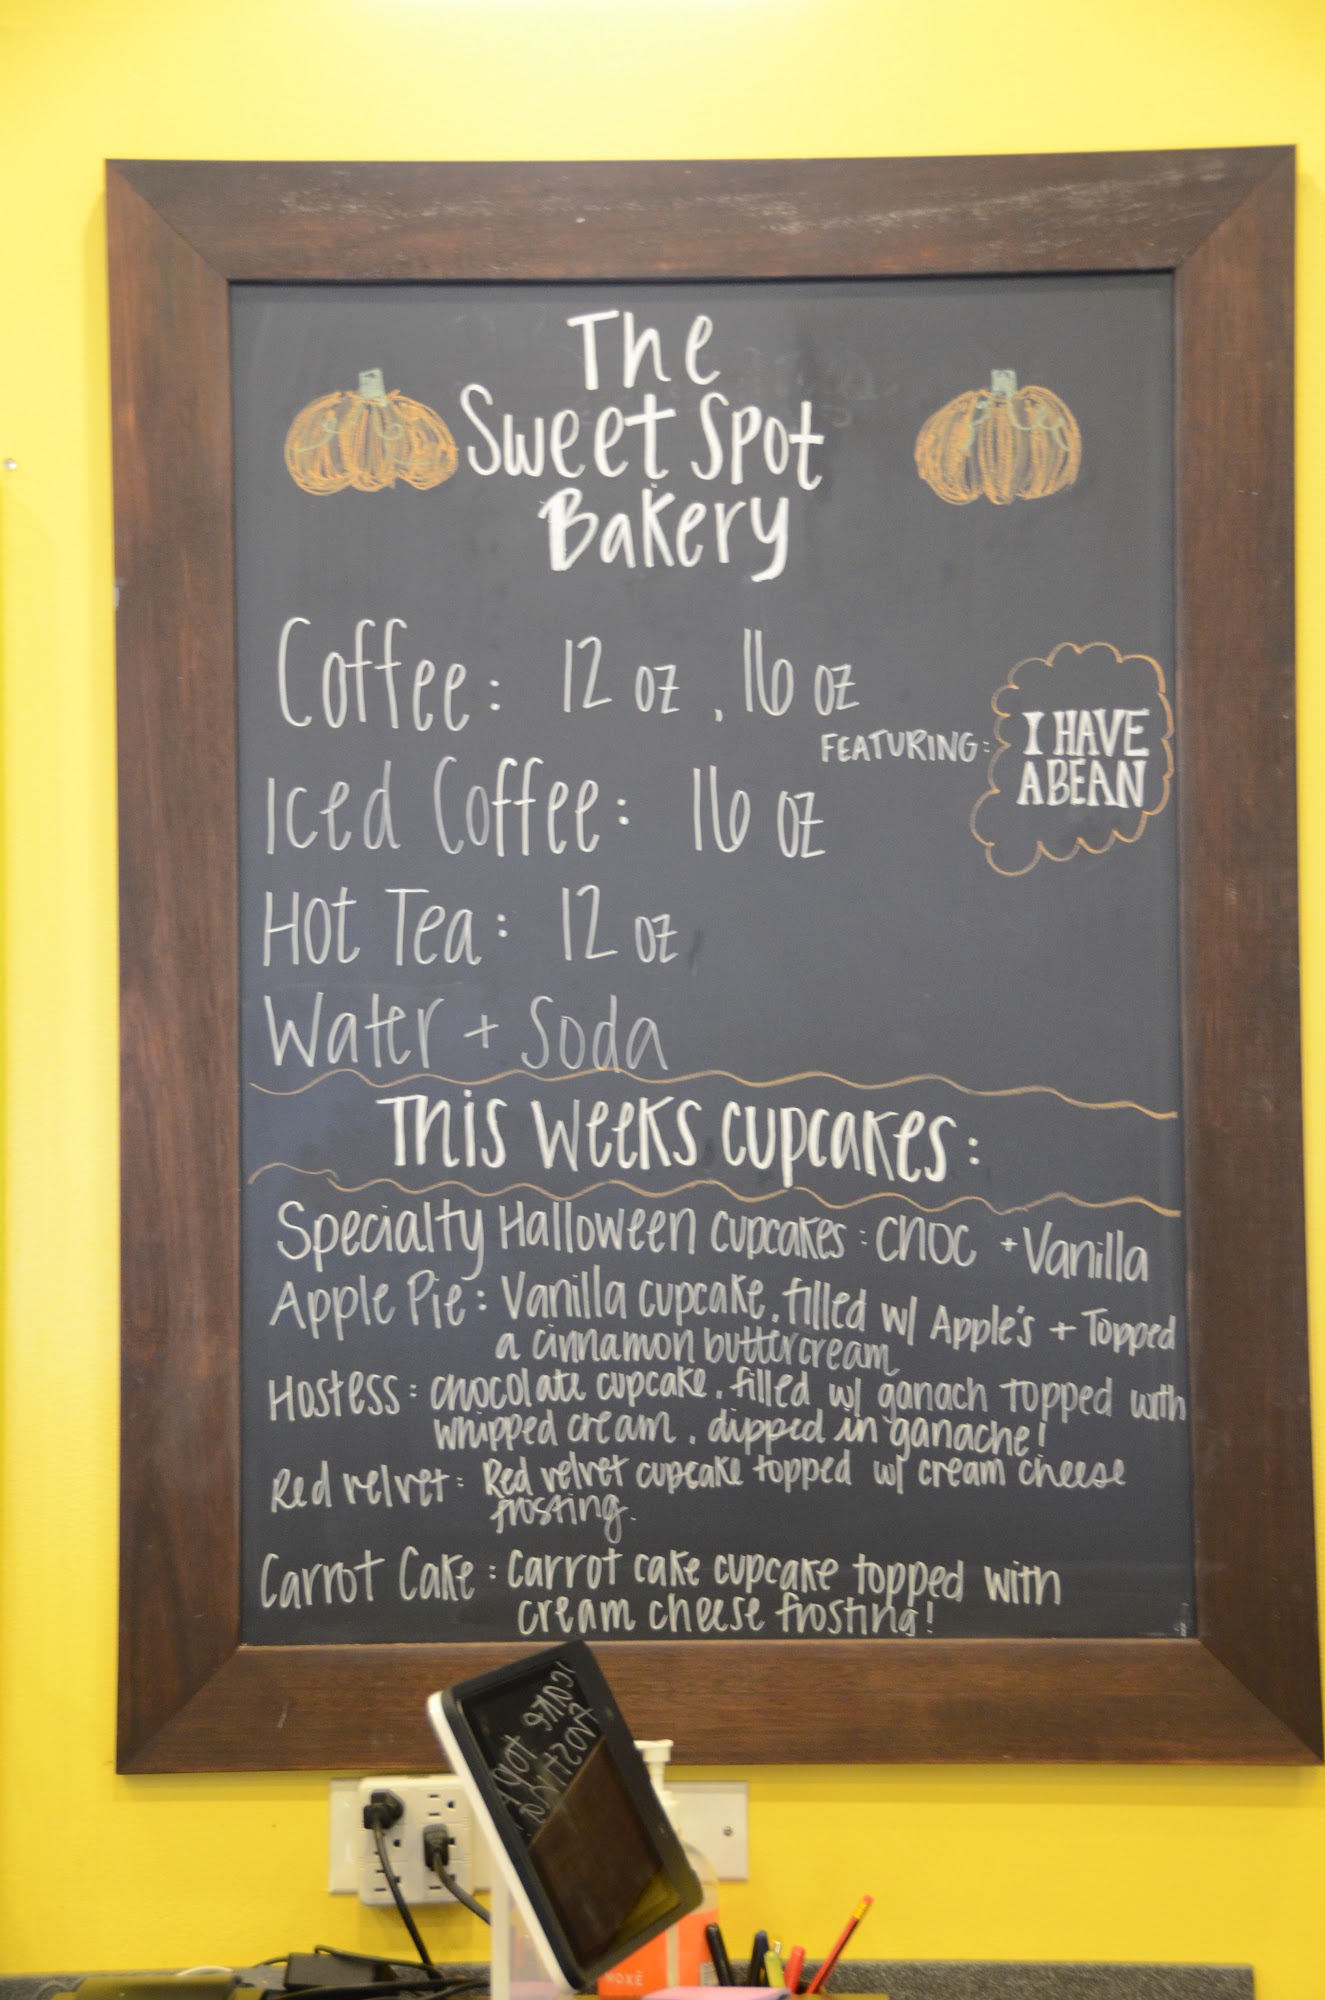 The
Sweet Spot
Bakery
Coffee: 12 oz, 16 oz
FEATURING:
I HAVE
A BEAN
Iced Coffee: 16 oz
Hot Tea: 12 oz
Water + Soda
This weeks cupcakes:
Specialty Halloween cupcakes: choc + Vanilla
Apple Pie: Vanilla cupcake, filled w/ Apple's + Topped
a cinnamon buttercream
Hostess: chocolate cupcake, filled w/ ganach topped with
whipped cream, dipped in ganache!
Red velvet: Red velvet cupcake topped w/ cream cheese
frosting.
Carrot Cake: Carrot cake cupcake topped with
cream cheese frosting!